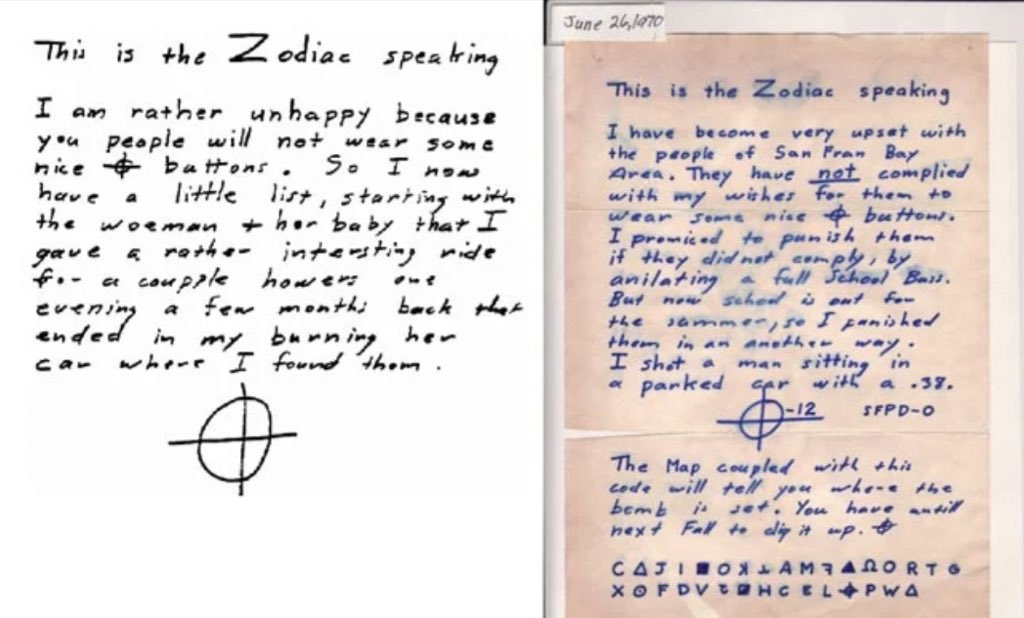 This is the Zodiac speaking
I am rather unhappy because
you people will not wear some
nice ⌖ buttons. So I now
have a little list, starting with
the woeman + her baby that I
gave a rather intersting ride
for a coupple howers one
evening a few months back that
ended in my burning her
car where I found them.
June 26, 1970
This is the Zodiac speaking
I have become very upset with
the people of San Fran Bay
Area. They have not complied
with my wishes for them to
wear some nice ⌖ buttons.
I promiced to punish them
if they did not comply, by
anilating a full School Buss.
But now school is out for
the summer, so I punished
them in an another way.
I shot a man sitting in
a parked car with a .38.
⌖-12 SFPD-0
The Map coupled with this
code will tell you where the
bomb is set. You have untill
next Fall to dig it up. ⌖
C Δ J I ■ O ꓘ ⊥ A M ꟻ ▲ Ω O R T G
X ⊙ F D V
H C E L ⌖ P W Δ